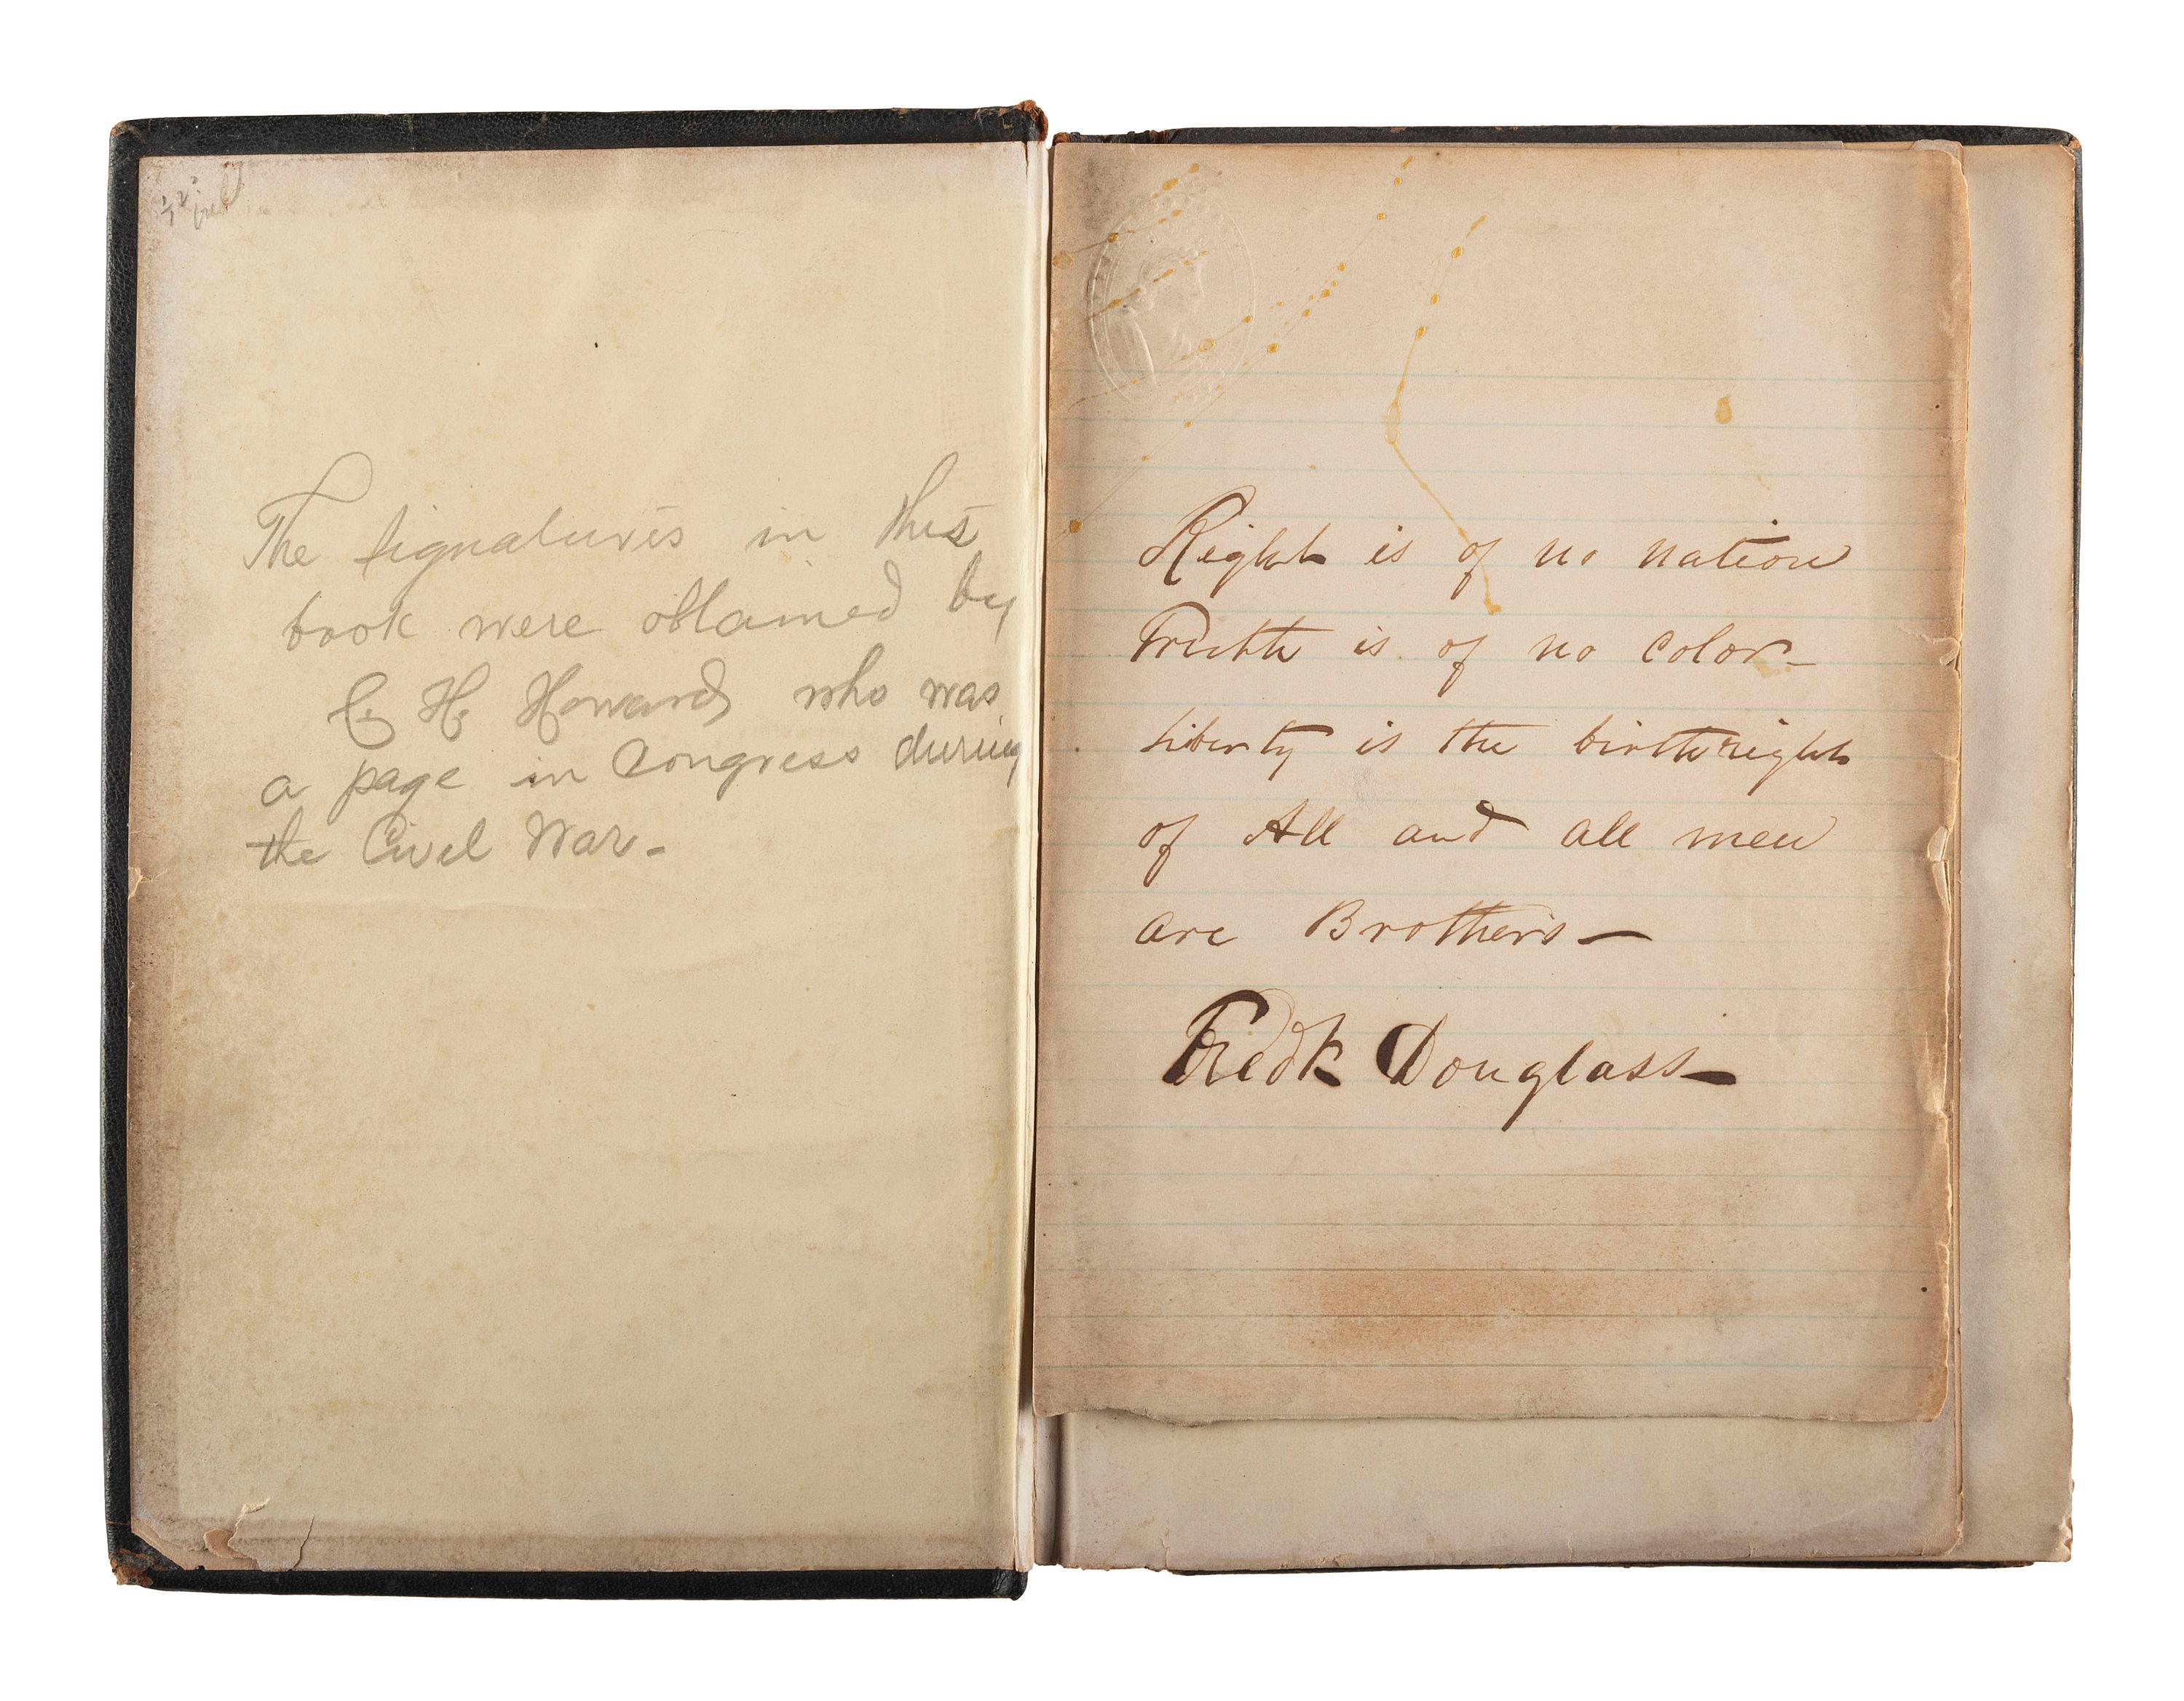 The signatures in this
book were obtained by
C. H. Howard who was
a page in Congress during
the Civil War-
Right is of no nation
Truth is of no color-
Liberty is the birthright
of All and all men
are Brothers—
Fredk Douglass—